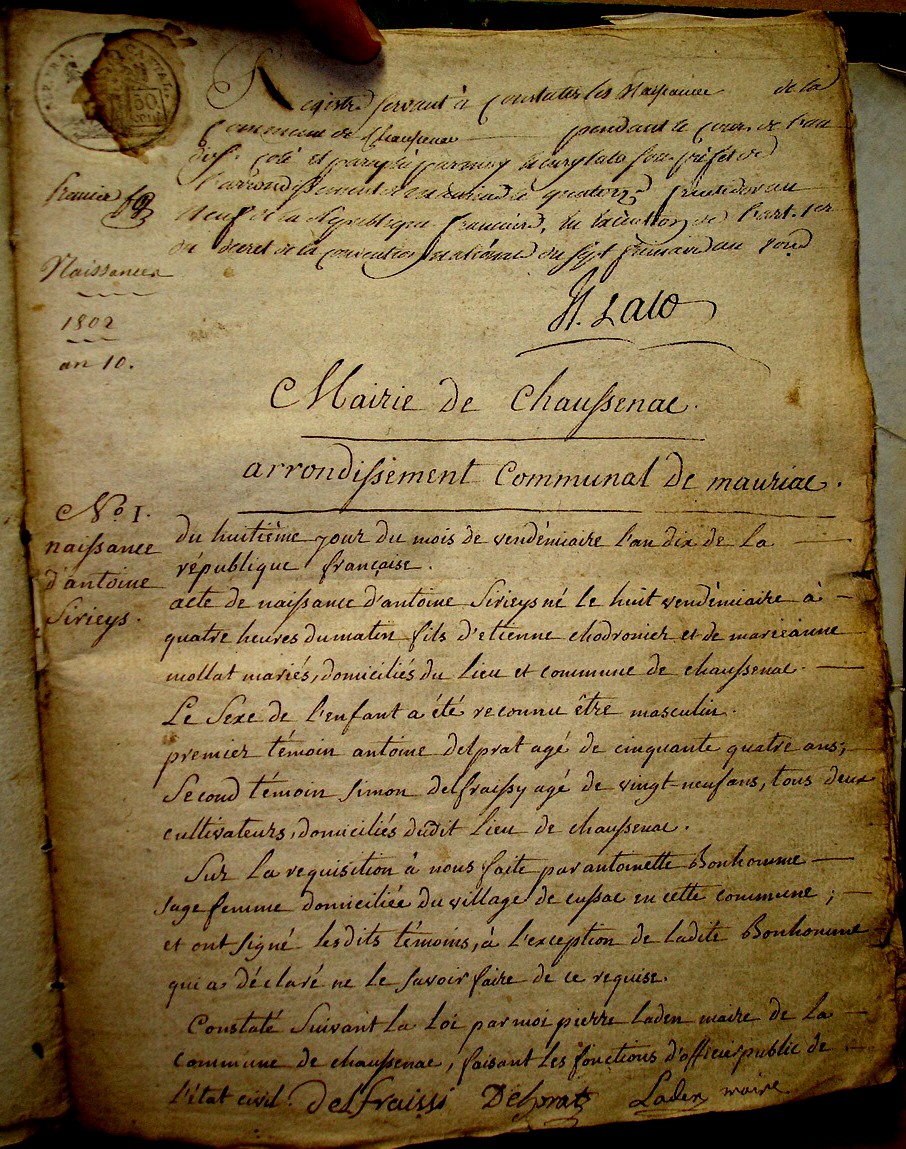 Registre servant à Constater les Naissances de la
Commune de Chaussenac pendant le cours de l'an
dix. coté et paraphé par moy henry lalo sous préfet de
l'arrondissement de mauriac le quatorze fructidor an
neuf de la République française, en exécution de l'art. 1er
du decret de la convention nationale du sept frimaire an
H. Lalo
premier
Naissances
1802
an 10.
Mairie de Chaussenac.
arrondissement Communal de mauriac.
No. 1.
naissance
d'antoine
Sirieys.
du huitième jour du mois de vendémiaire l'an dix de la
république française.
acte de naissance d'antoine Sirieys né le huit vendémiaire à
quatre heures du matin fils d'etienne chodronier et de marieanne
mollat mariés, domiciliés du Lieu et commune de chaussenac.
Le Sexe de l'enfant a été reconnu être masculin.
premier témoin antoine delprat agé de cinquante quatre ans;
Second témoin Simon delfraissy agé de vingt-neuf ans, tous deux
cultivateurs, domiciliés dudit Lieu de chaussenac.
Sur la requisition à nous faite par antoinette Bonhomme
sage femme domiciliée du village de cussac en cette commune;
et ont signé lesdits témoins, à l'exception de ladite Bonhomme
qui a déclaré ne le savoir faire de ce requise.
Constaté Suivant la Loi par moi pierre Laden maire de la
Commune de chaussenac, faisant les fonctions d'officier public de
l'état civil. Delfraissi Delprat Laden maire